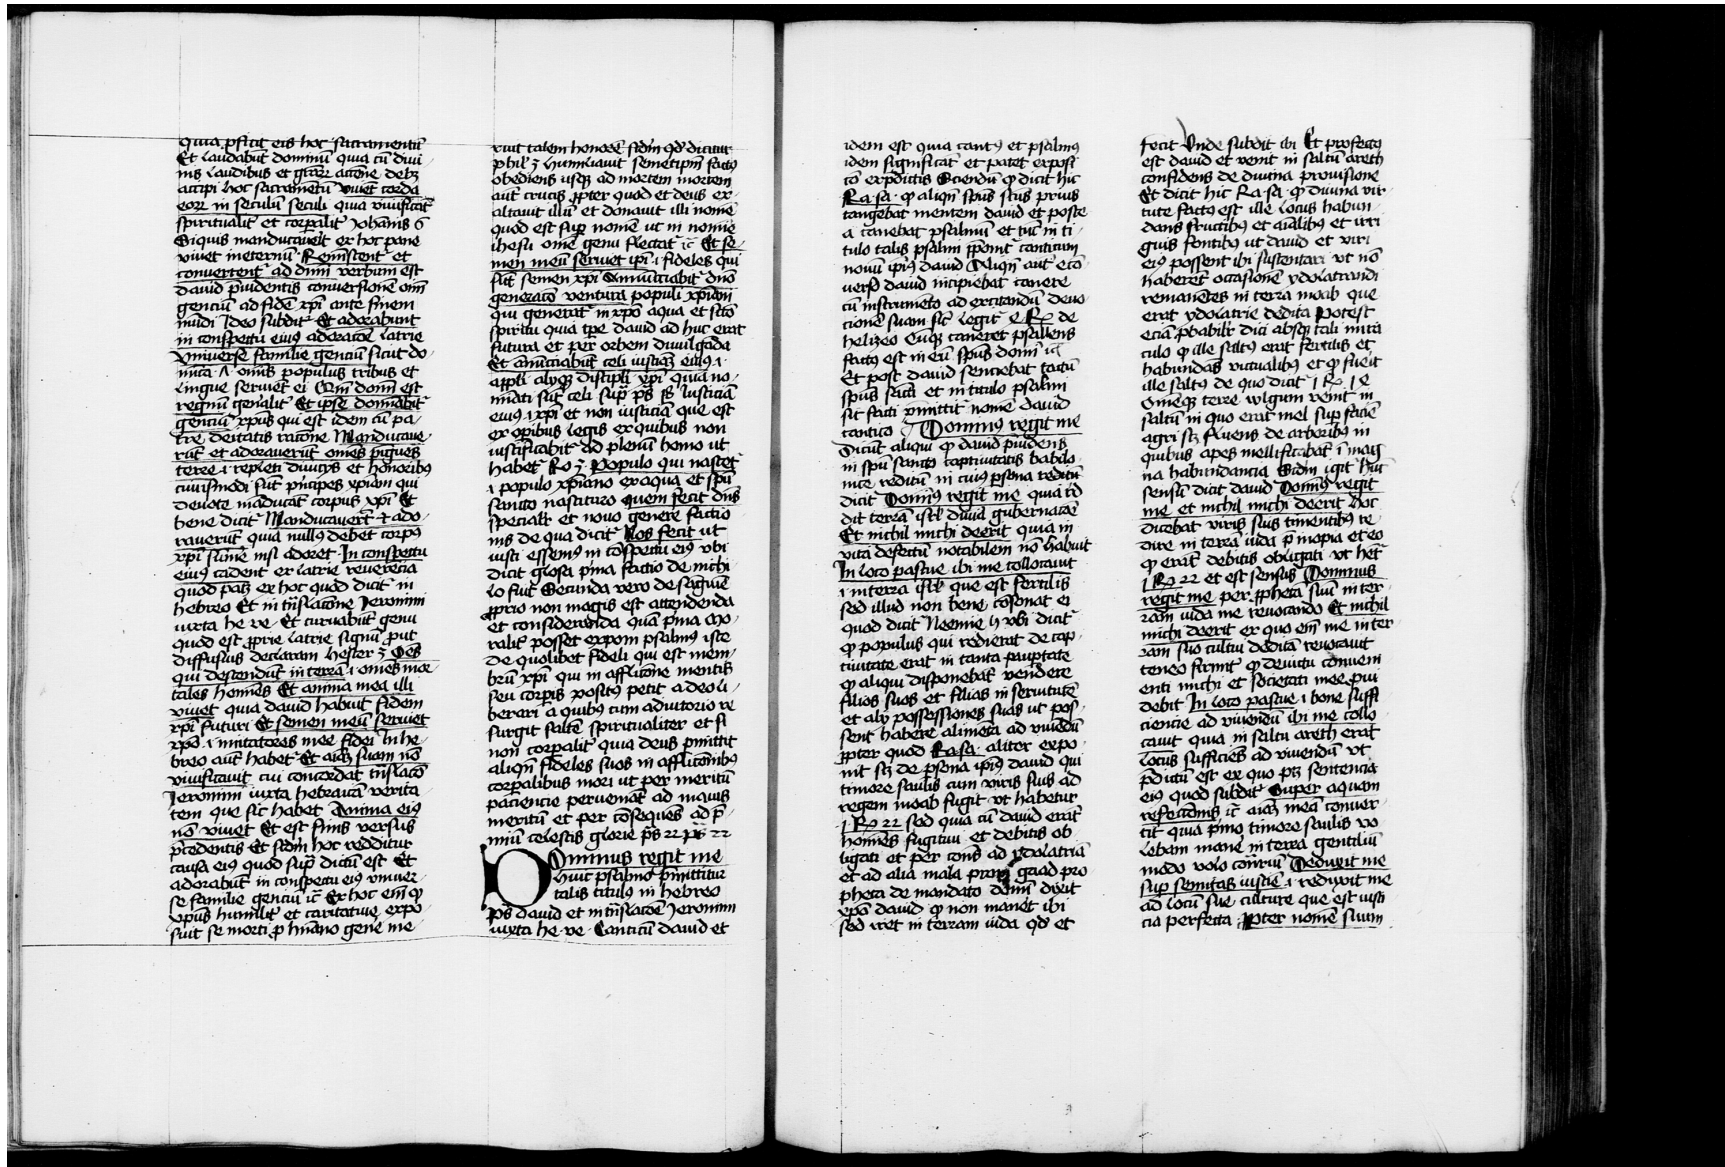 quia p̱ficit eis hoc sacramentū
Et laudabūt dominū quia cū diui
nis laudibus et gr̄arꝝ actōne debꝫ
accipi hoc sacramētū viuēt corda
eoꝝ in seculū seculi quia viuificāt᷑
spiritualit᷑ et corꝑalit᷑ Johānis 6
Siquis manducauerit ex hoc pane
viuet ineternū Reminiscent᷑ et
conuertent᷑ ad dnm̄ verbum est
dauid p̄uidentis conuersionē om̄
genciū ad fidē xp̄i ante finem
mūdi Ideo subdit᷑ Et adorabunt
in conspectu eius adoracōe latrie
vniuerse familie genciū sicut do
mīca · A · omīs populus tribus et
lingue seruiet ei Qm̄ domī est
regnū gen̄alit᷑ Et ipse domīabit᷑
genciū xp̄us qui est idem cū pa
tre deitatis racōne Manducaue
rūt et adorauerūt omēs pīgues
terre · i · repleti diuicijs et honoribꝯ
cuiusmodi sūt p̄ncipes xp̄iani qui
deuote māducāt corpus xp̄i Et
bene dicit᷑ Manducauerūt ⁊ ado
rauerūt quia nullꝯ debet corpꝯ
xp̄i sum̄e nisi adoret · In conspectu
eiꝯ cadent ex latrie reuerēcia
quod patꝫ ex hoc quod dicit᷑ in
hebreo Et in tn̄slacōne Jeronimi
iuxta he · ve · Et curuabūt genu
quod est ꝓprie latrie signū ꝓut
diffusius declaram hester 3 Oēs
qui descendūt in terrā · i · omēs mor
tales homīes Et anima mea illi
viuet quia dauid habuit fidem
xp̄i futuri Et semen meū seruiet
xp̄o · i · imitatores mee fidei In he
breo aut᷑ habet᷑ Et aīaꝫ suam nō
viuificauit cui concordat tn̄slacō
Jeronimi iuxta hebraicā verita
tem que sic habet Anima eiꝯ
nō viuet Et est finis versus
p̄cedentis Et scd̄m hoc redditur
causa eiꝯ quod sup̄ dictū est Et
adorabūt in conspectu eiꝯ vniuer
se familie genciū ꝛc̄ Ex hoc em̄ ꝙ
xp̄us humilit᷑ et caritatiue expo
suit se morti ꝓ hūano gene me
ruit talem honorē scd̄m qd̄ dicitur
phil᷑ 3 humiliauit semetipm̄ factꝯ
obediens usqꝫ ad mortem mortem
aut᷑ crucis ꝓpter quod et deus ex
altauit illū et donauit illi nomē
quod est suꝑ nomē ut in nomīe
ihesu omē genu flectat᷑ ꝛc̄ Et se
men meū seruiet ip̄i · i · fideles qui
sūt semen xp̄i Annūciabit᷑ dn̄o
generacō ventura populi xp̄iani
qui generat᷑ in xp̄o aqua et sc̄tō
spiritu quia tp̄e dauid ad huc erat
futura et per orbem diuulgāda
Et annūciabūt celi iusticiā eiꝯ · i ·
ap̄pli alijqꝫ discipli xp̄i quia no
minati sūt celi sup̄ p̄s p̄s Iusticiā
eiꝯ · i · xp̄i et non iusticiā que est
ex oꝑibus legis ex quibus non
iustificabit᷑ ad plenū homo ut
habet᷑ Ro 3 Populo qui nascet᷑
· i · populo xp̄iano ex aqua et spū
sancto nascituro Quem fecit dn̄s
specialr̄ et nouo genere factio
nis de qua dicit᷑ Nos fecit ut
iusti essemꝯ in cōspectu eiꝯ vbi
dicit glosa p̄ma factio de nichi
lo fuit Secunda vero de saguīe
ꝓprio non magis est attendenda
et consideranda quā p̄ma mo
ralit᷑ posset exponi psalmꝯ iste
de quolibet fideli qui est mem
brū xp̄i qui in afflictōne mentis
seu corꝑis positꝯ petit a deo li
berari a quibꝯ cum adiutorio re
surgit saltē spiritualiter et si
non corꝑalit᷑ quia deus p̄mittit
aliqn̄ fideles suos in afflictōnibꝯ
corꝑalibus mori ut per meritū
paciencie perueniāt ad maius
meritū et per cōsequēs ad p̄
miū celestis glorie p̄s 22 p̄s 22
Dominus regit me
huic psalmo p̄mittitur
talis titulꝯ in hebreo
p̄s dauid et in tn̄slacōe Jeronimi
iuxta he · ve · Canticū dauid et
idem est quia cantꝯ et psalmꝯ
idem significāt et patet exposi
cō ex p̄dictis Sciendū ꝙ dicit hic
Ra · sa · ꝙ aliqn̄ spūs sc̄tus prius
tangebat mentem dauid et poste
a canebat psalmū et tūc in ti
tulo talis psalmi p̄ponit᷑ canticum
nouū ipiꝯ dauid Aliqn̄ aut᷑ ecō
uerso dauid incipiebat canere
cū instrumēto ad excitandū deuo
cionē suam sic̄ legit᷑ 4 Rꝫ de
helizeo Cūqꝫ caneret psallens
factꝯ est in eū spūs domī ꝛc̄
Et post dauid senciebat tactū
spūs sācti et in titulo psalmi
sic facti p̄mittit᷑ nomē dauid
cantico · Dominus regit me
Dicūt aliqui ꝙ dauid p̄uidens
in spū sancto captiuitatis babilo
nice reditū in cuiꝯ ꝑsona reditū
dicit Domīꝯ regit me quia red
dit terrā isrl̄ diuīa gubernacōe
Et nichil michi deerit quia in
via defectū notabilem nō habuit
In loco pascue ibi me collocauit
· i · in terra isrl̄ que est fertilis
sed illud non bene cōsonat ei
quod dicit᷑ Neemie 5 vbi dicit᷑
ꝙ populus qui redierat de cap
tiuitate erat in tanta pauꝑtate
ꝙ aliqui disponebāt vendere
filios suos et filias in seruitutē
et alij possessiones suas ut pos
sent habere alimēta ad viuēdū
ꝓpter quod Ra · sa · aliter expo
nit scꝫ de ꝑsona ipiꝯ dauid qui
timore saulis cum viris suis ad
regem moab fugit vt habetur
1 Rꝫ 22 sed quia cū dauid erāt
homīes fugitiui et debitis ob
ligati et per cons̄ ad ydolatriā
et ad alia mala proni gaad pro
pheta de mandato domī dixit
ip̄i dauid ꝙ non manēt ibi
sed iret in terram iuda qd̄ et
fecit Unde subdit᷑ ibi Et profectꝯ
est dauid et venit in saltū areth
confidens de diuina prouisione
Et dicit hic Ra · sa · ꝙ diuina vir
tute factꝯ est ille locus habun
dans fructibꝯ et aīalibꝯ et irri
guis fontibꝯ ut dauid et viri
eiꝯ possent ibi sustentari vt nō
haberēt occasionē ydolatrandi
remanētes in terra moab que
erat ydolatrie dedita Potest
eciā ꝓbabilit᷑ dici absqꝫ tali mira
culo ꝙ ille saltꝯ erat fertilis et
habundās victualibꝯ et ꝙ fuerit
ille saltꝯ de quo dicit᷑ 1 Rꝫ 14
Omēqꝫ terre wlgum venit in
saltū in quo erat mel suꝑ faciē
agri scꝫ fluens de arboribꝯ in
quibus apes mellificabāt ī mag
na habundancia Scd̄m igit᷑ hūc
sensū dicit dauid Domīꝯ regit
me et nichil michi deerit hoc
dicebat viris suis timentibꝯ re
dire in terrā iuda p̄ inopia et eo
ꝙ erāt debitis obligati vt het᷑
1 Rꝫ 22 et est sensus Dominus
regit me per ꝓphetā suū in ter
ram iuda me reuocando Et nichil
michi deerit ex quo em̄ me in ter
ram suo cultui deditā reuocauit
teneo firmit᷑ ꝙ de victu conueni
enti michi et societati mee ꝓui
debit In loco pascue · i · bone suffi
ciencie ad viuendū ibi me collo
cauit quia in saltu areth erat
locus sufficiēs ad viuendū vt
p̄dictū est ex quo pꝫ sentencia
eiꝯ quod subdit᷑ Super aquam
refectōnis ꝛc̄ aīaꝫ meā conuer
tit quia p̄mo timore saulis vo
lebam mane in terra gentiliū
modo volo cōn̄riū Deduxit me
suꝑ semitas iusticie · i · reduxit me
ad locū sue culture que est iusti
cia perfecta · ꝓpter nomē suum